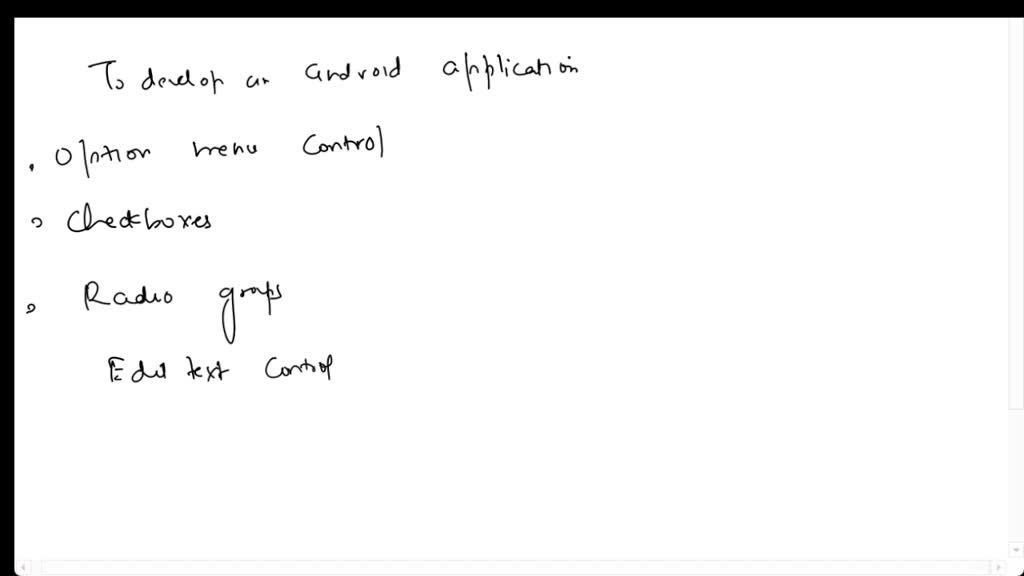 To develop an android application
. Option menu Control
Checkboxes
Radio groups
Edit text Control